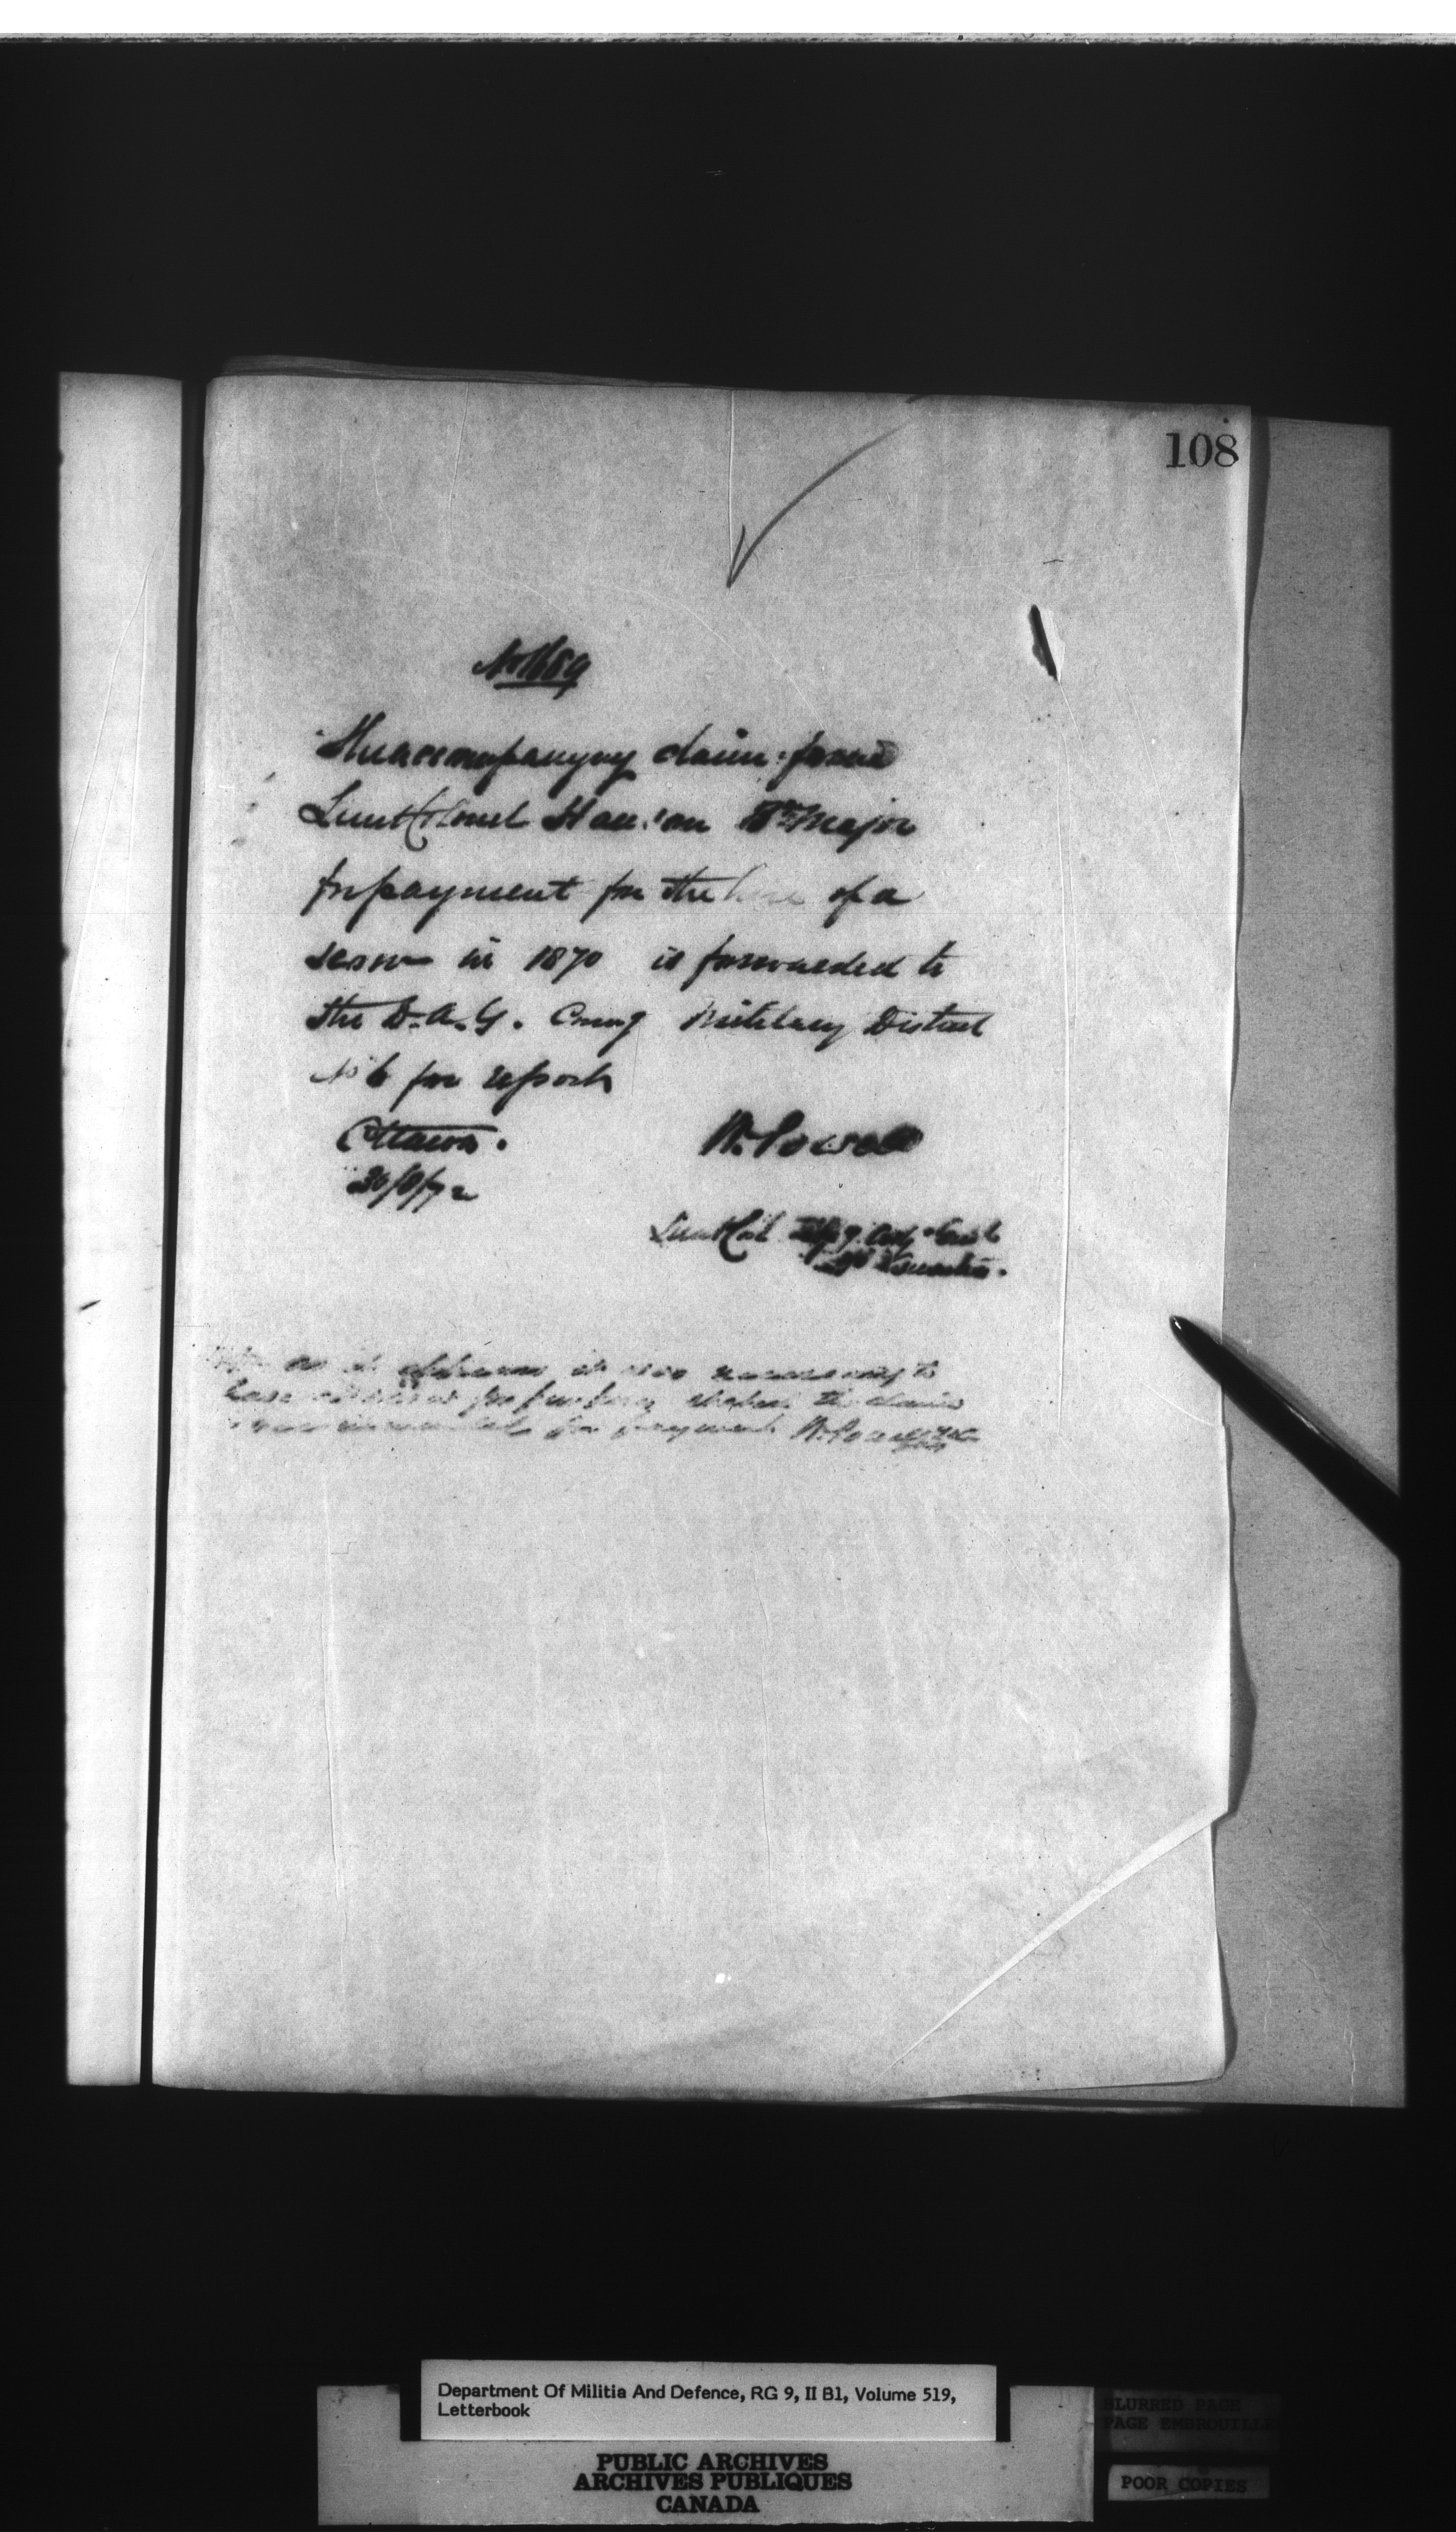 108
The accompanying claim from
Lieut Colonel Bd. Major
for payment for the of a
scow in 1870 is forwarded to
the D.A.G. Comg Military District
No 6 for report
Ottawa.
W. Powell
30/8/72
Lieut Col
as it appears it was necessary to
have a for the claim
is recommended for payment W. Powell
Department Of Militia And Defence, RG 9, II B1, Volume 519,
Letterbook
BLURRED PAGE
PAGE EMBROUILLEE
PUBLIC ARCHIVES
ARCHIVES PUBLIQUES
CANADA
POOR COPIES